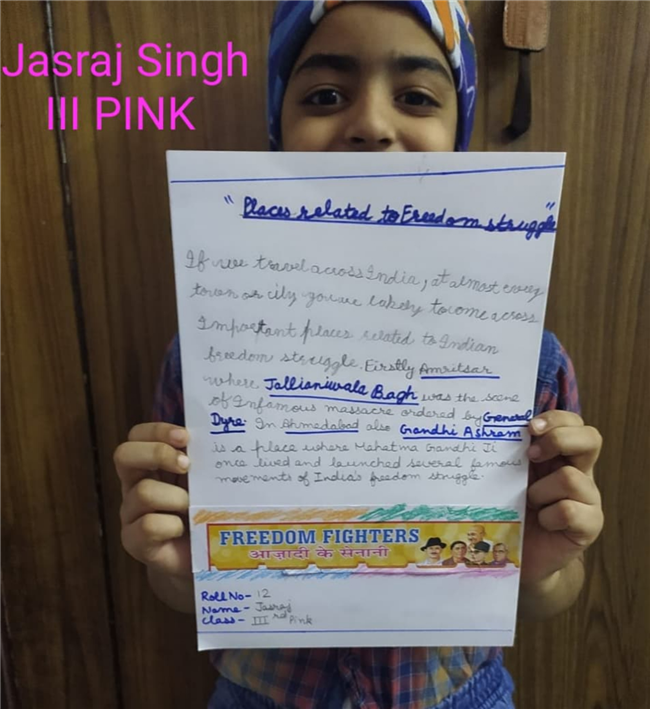 Jasraj Singh
III PINK
"Places related to Freedom struggle"
If we travel across India, at almost every
town or city you are likely to come across
Important places related to Indian
freedom struggle. Firstly Amritsar
where Jallianiwala Bagh was the scene
of Infamous massacre ordered by General
Dyre. In Ahmedabad also Gandhi Ashram
is a place where Mahatma Gandhi Ji
once lived and launched several famous
movements of India's freedom struggle.
FREEDOM FIGHTERS
आज़ादी के सेनानी
Roll No- 12
Name - Jasraj
Class - III rd Pink